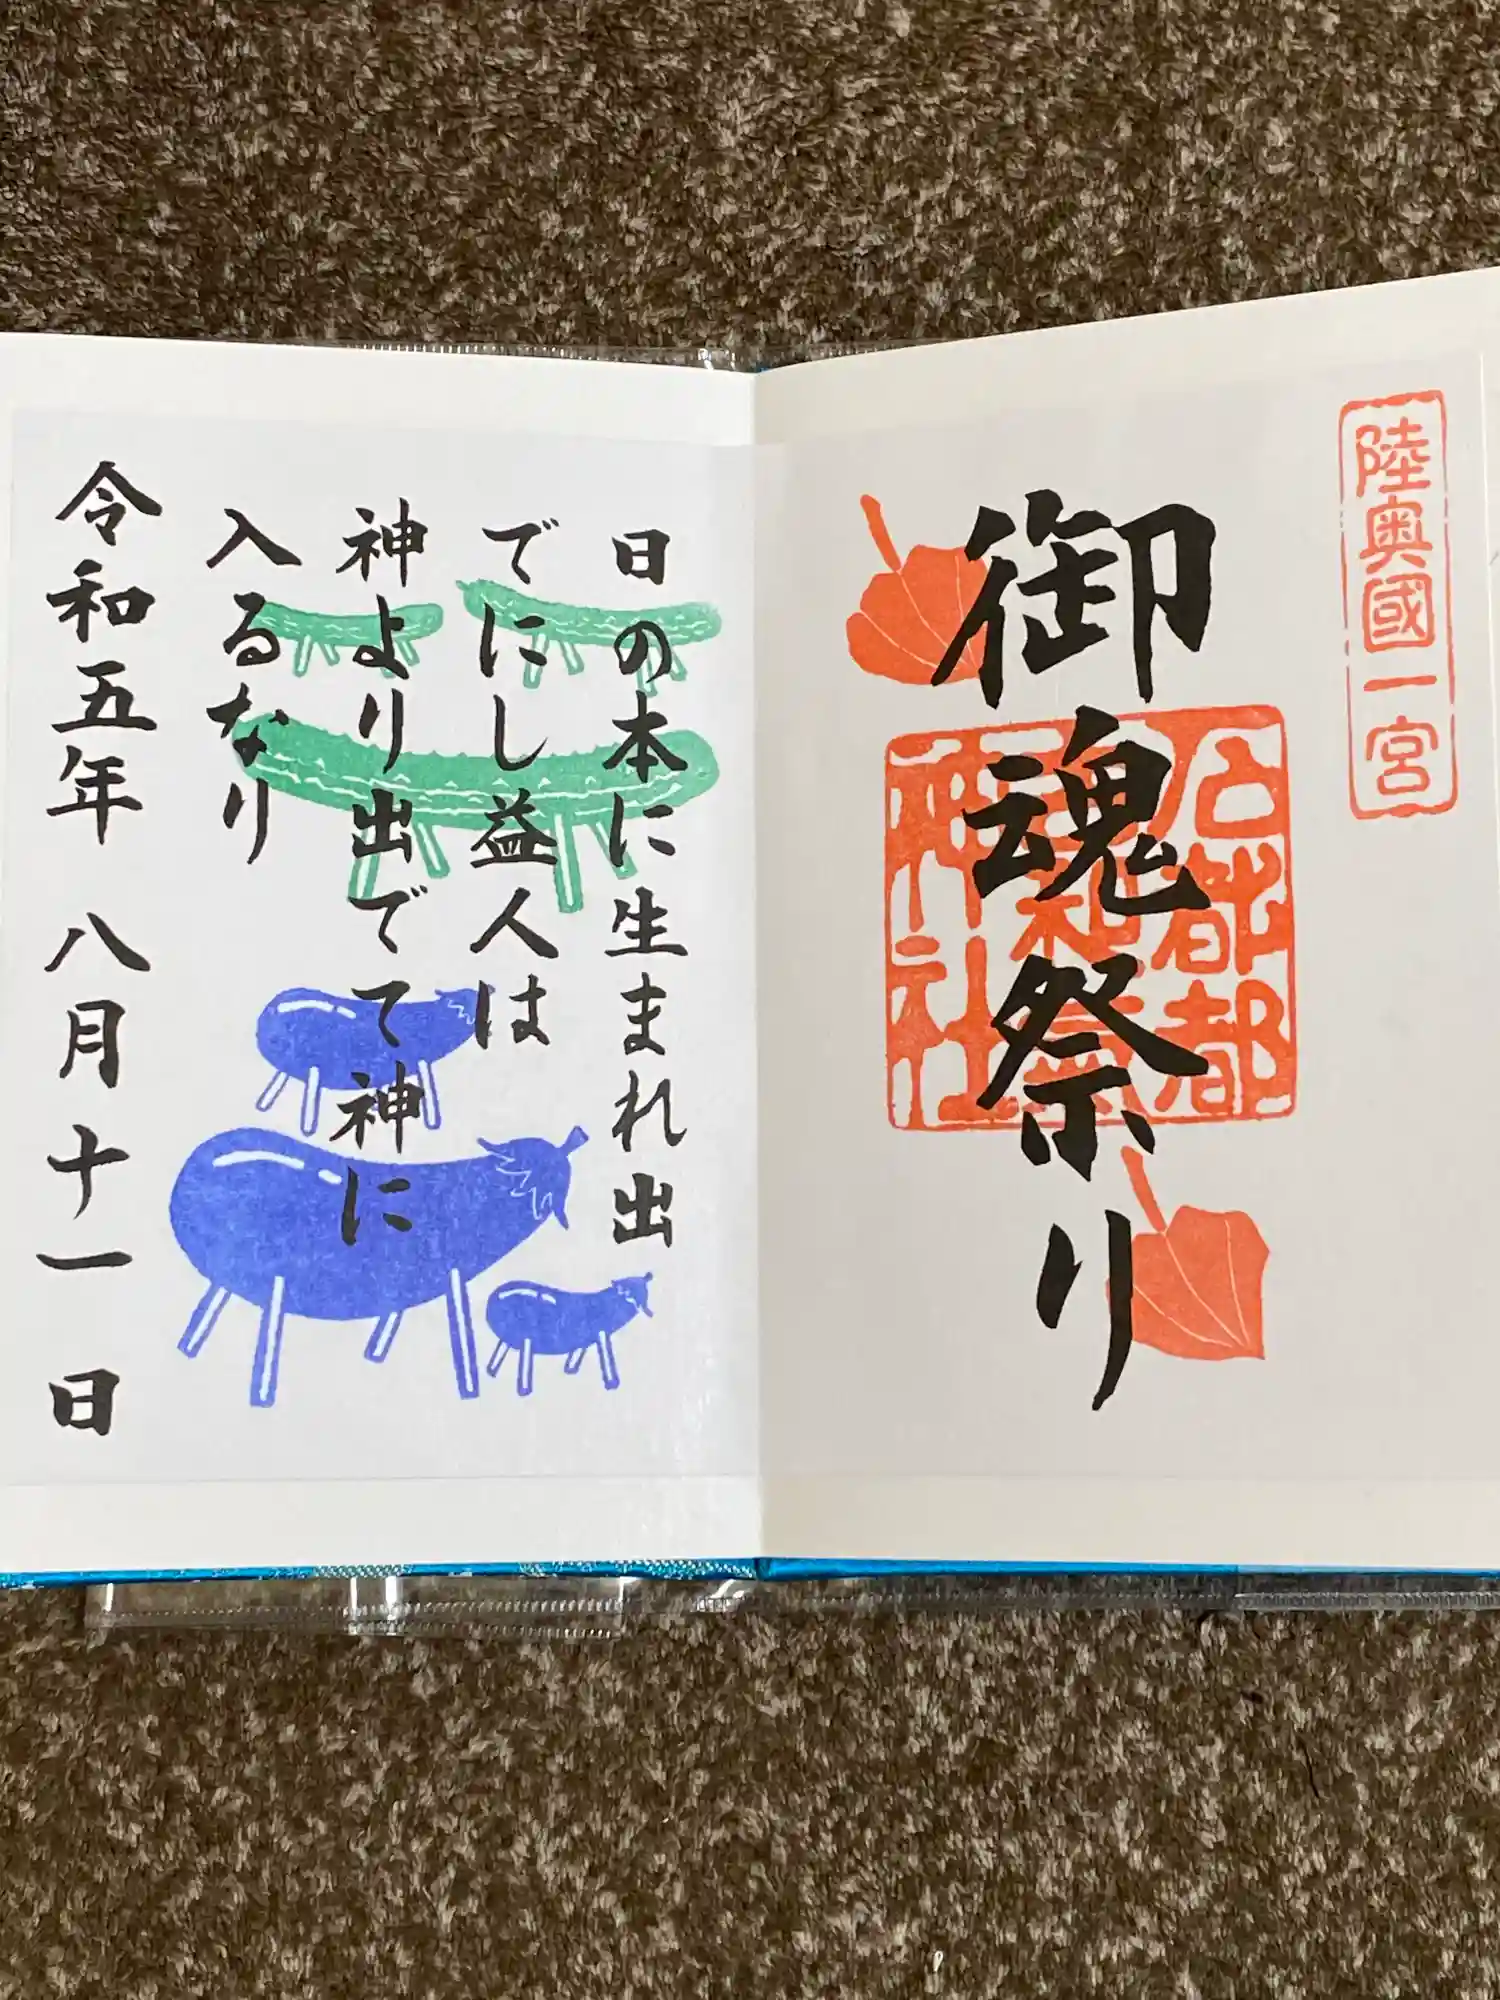 陸奥國一宮
御魂祭り
石都都古和氣神社
日の本に生まれ出
でにし益人は
神より出でて神に
入るなり
令和五年 八月十一日